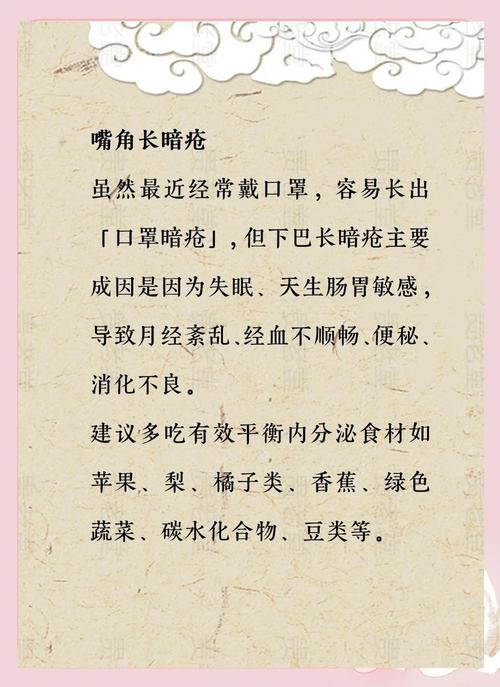 嘴角长暗疮
虽然最近经常戴口罩，容易长出
「口罩暗疮」，但下巴长暗疮主要
成因是因为失眠、天生肠胃敏感，
导致月经紊乱、经血不顺畅、便秘、
消化不良。
建议多吃有效平衡内分泌食材如
苹果、梨、橘子类、香蕉、绿色
蔬菜、碳水化合物、豆类等。